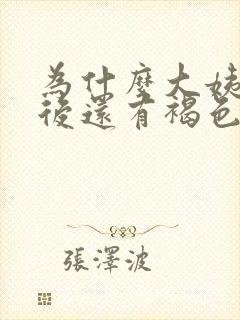 為什麼大姨
後還有褐色
張澤波